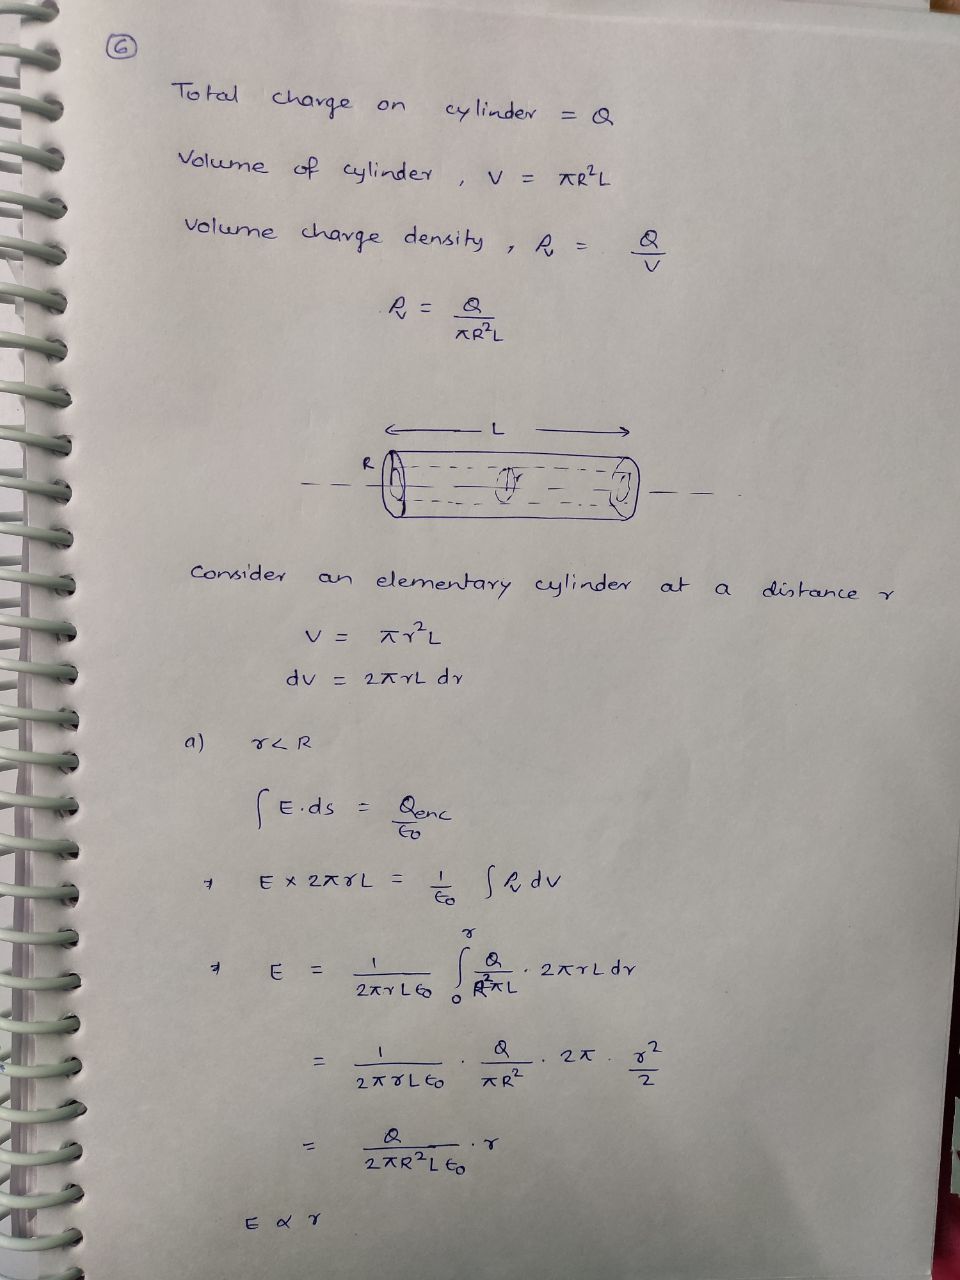 6
Total charge on cylinder = Q
Volume of cylinder, V = πR²L
Volume charge density, ρᵥ = Q/V
ρᵥ = Q/πR²L
L
R
r
Consider an elementary cylinder at a distance r
V = πr²L
dv = 2πrL dr
a) r < R
∫ E.ds = Qenc/ε₀
⇒ E × 2πrL = 1/ε₀ ∫ ρᵥ dv
⇒ E = 1/2πrLε₀ ∫₀ʳ Q/R²πL . 2πrL dr
= 1/2πrLε₀ . Q/πR² . 2π . r²/2
= Q/2πR²Lε₀ . r
E ∝ r